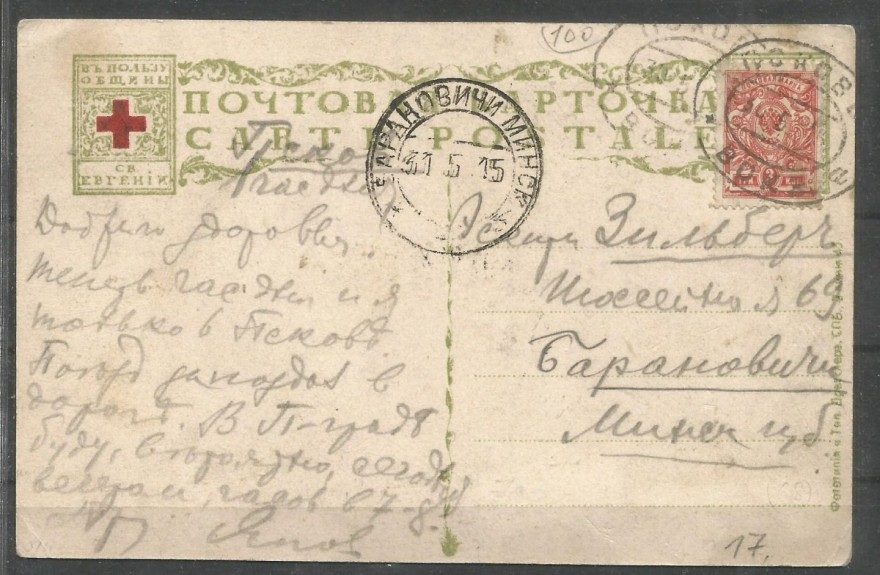 100
ВЪ ПОЛЬЗУ
ОБЩИНЫ
СВ.
ЕВГЕНІИ
ПОЧТОВАЯ КАРТОЧКА
CARTE POSTALE
БАРАНОВИЧИ МИНСК.
31 5 15
ПСКОВЪ
Псков
Доброго здоровья
теперь час дня и я
только в Псковѣ
Поезд запоздал в
дороге. В П-градѣ
буду, вероятно, сегодня
вечером, часов в 7-8.
Зильберъ
Шоссейная 69
Барановичи
Минск губ
Фототипія и Тип.
17.